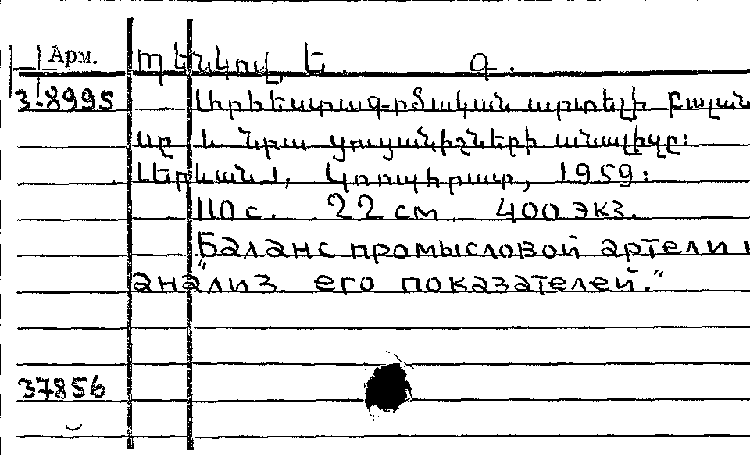 Арм. Պենկով, Ե. Գ.
3-8995 արտելի բալան
սը և նրա ցուցանիշների անալիզը:
Երևան, Կոոպհրատ, 1959:
110 с. 22 см 400 экз.
"Баланс промысловой артели и
анализ его показателей."
37856